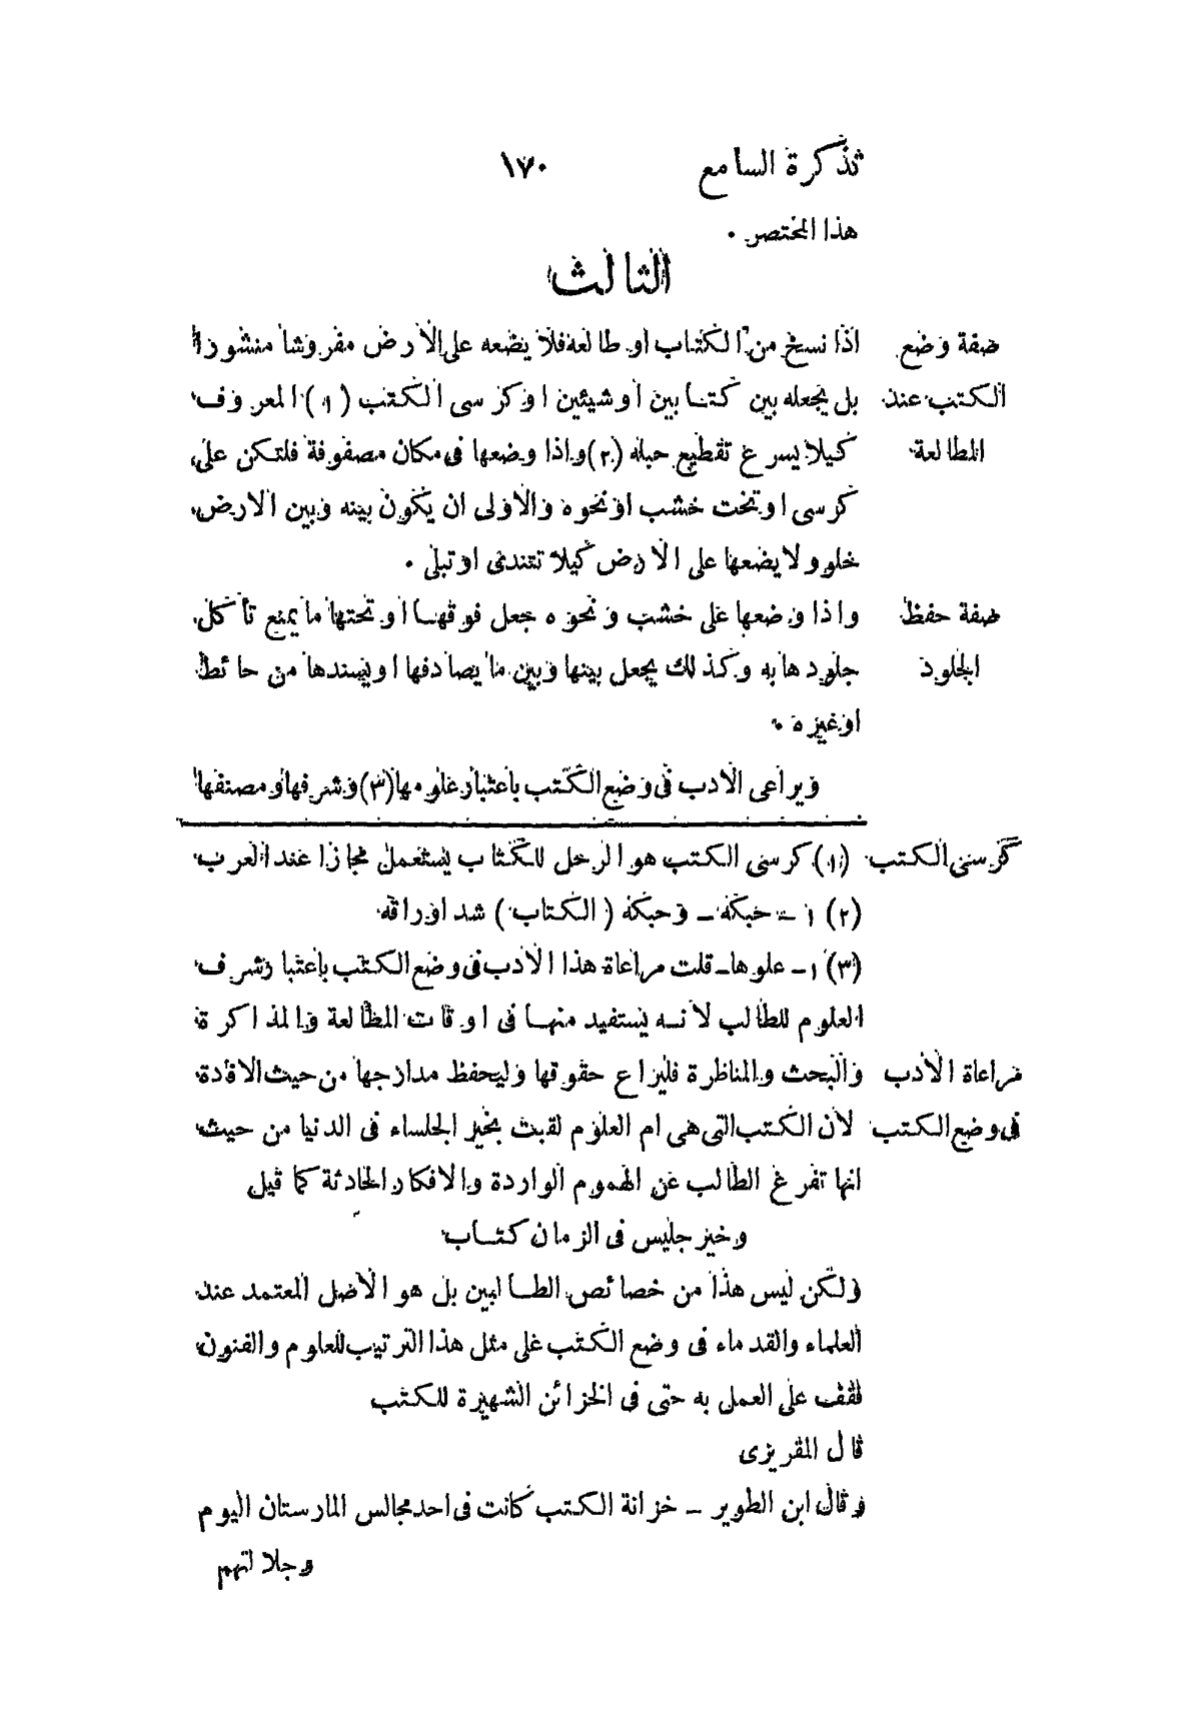 تذكرة السامع ١٧٠
هذا المختصر .
الثالث
صفة وضع اذا نسخ من الكتاب او طالعه فلا يضعه على الارض مفروشا منشورا
الكتب عند بل يجعله بين كتابين او شيئين او كرسى الكتب (١) المعروف
المطالعة كيلا يسرع تقطيع حبله (٢) واذا وضعها فى مكان مصفوفة فلتكن على
كرسى او تخت خشب او نحوه والاولى ان يكون بينه وبين الارض
خلو ولا يضعها على الارض كيلا تتندى او تبلى .
صفة حفظ واذا وضعها على خشب ونحوه جعل فوقها او تحتها ما يمنع تأكل
الجلود جلودها به وكذلك يجعل بينها وبين ما يصادفها او يسندها من حائط
او غيره .
ويراعى الادب فى وضع الكتب باعتبار علومها (٣) وشرفها ومصنفها
كرسى الكتب (١) كرسى الكتب هو الرحل للكتاب يستعمل مجازا عند العرب
(٢) ا = حبكه ــ وحبكه (الكتاب) شد اوراقه
(٣) ا ــ علوها ــ قلت مراعاة هذا الادب فى وضع الكتب باعتبار شرف
العلوم للطالب لانه يستفيد منها فى اوقات المطالعة والمذاكرة
مراعاة الادب والبحث والمناظرة فليراع حقوقها وليحفظ مدارجها من حيث الافادة
فى وضع الكتب لان الكتب التى هى ام العلوم لقبت بخير الجلساء فى الدنيا من حيث
انها تفرغ الطالب عن الهموم الواردة والافكار الحادثة كما قيل
وخير جليس فى الزمان كتاب
ولكن ليس هذا من خصائص الطالبين بل هو الاصل المعتمد عند
العلماء والقدماء فى وضع الكتب على مثل هذا الترتيب للعلوم والفنون
لقف على العمل به حتى فى الخزائن الشهيرة للكتب
قال المقريزى
وقال ابن الطوير ــ خزانة الكتب كانت فى احد مجالس المارستان اليوم
وجلالتهم